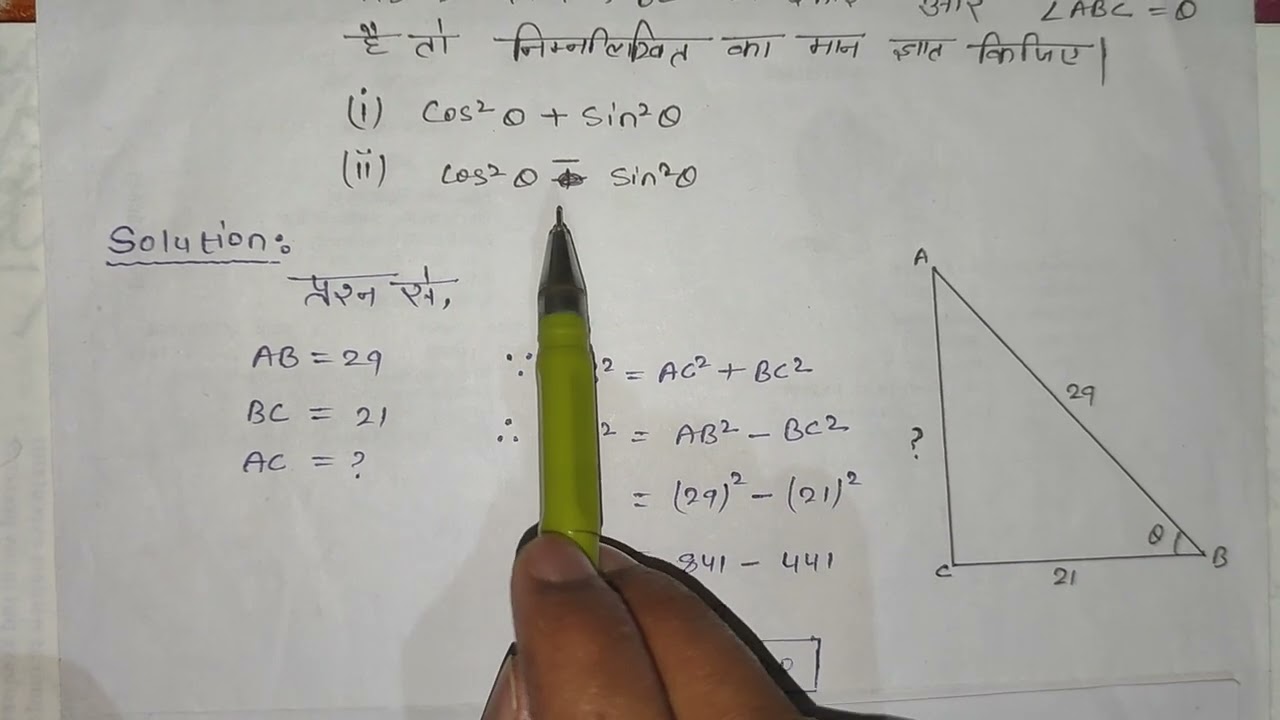 और ∠ABC = θ
है तो निम्नलिखित का मान ज्ञात किजिए।
(i) Cos² θ + Sin² θ
(ii) Cos² θ - Sin² θ
Solution:
प्रश्न से,
AB = 29
BC = 21
AC = ?
∵ ² = AC² + BC²
∴ ² = AB² – BC²
= (29)² – (21)²
841 – 441
A
29
?
θ
B
C
21